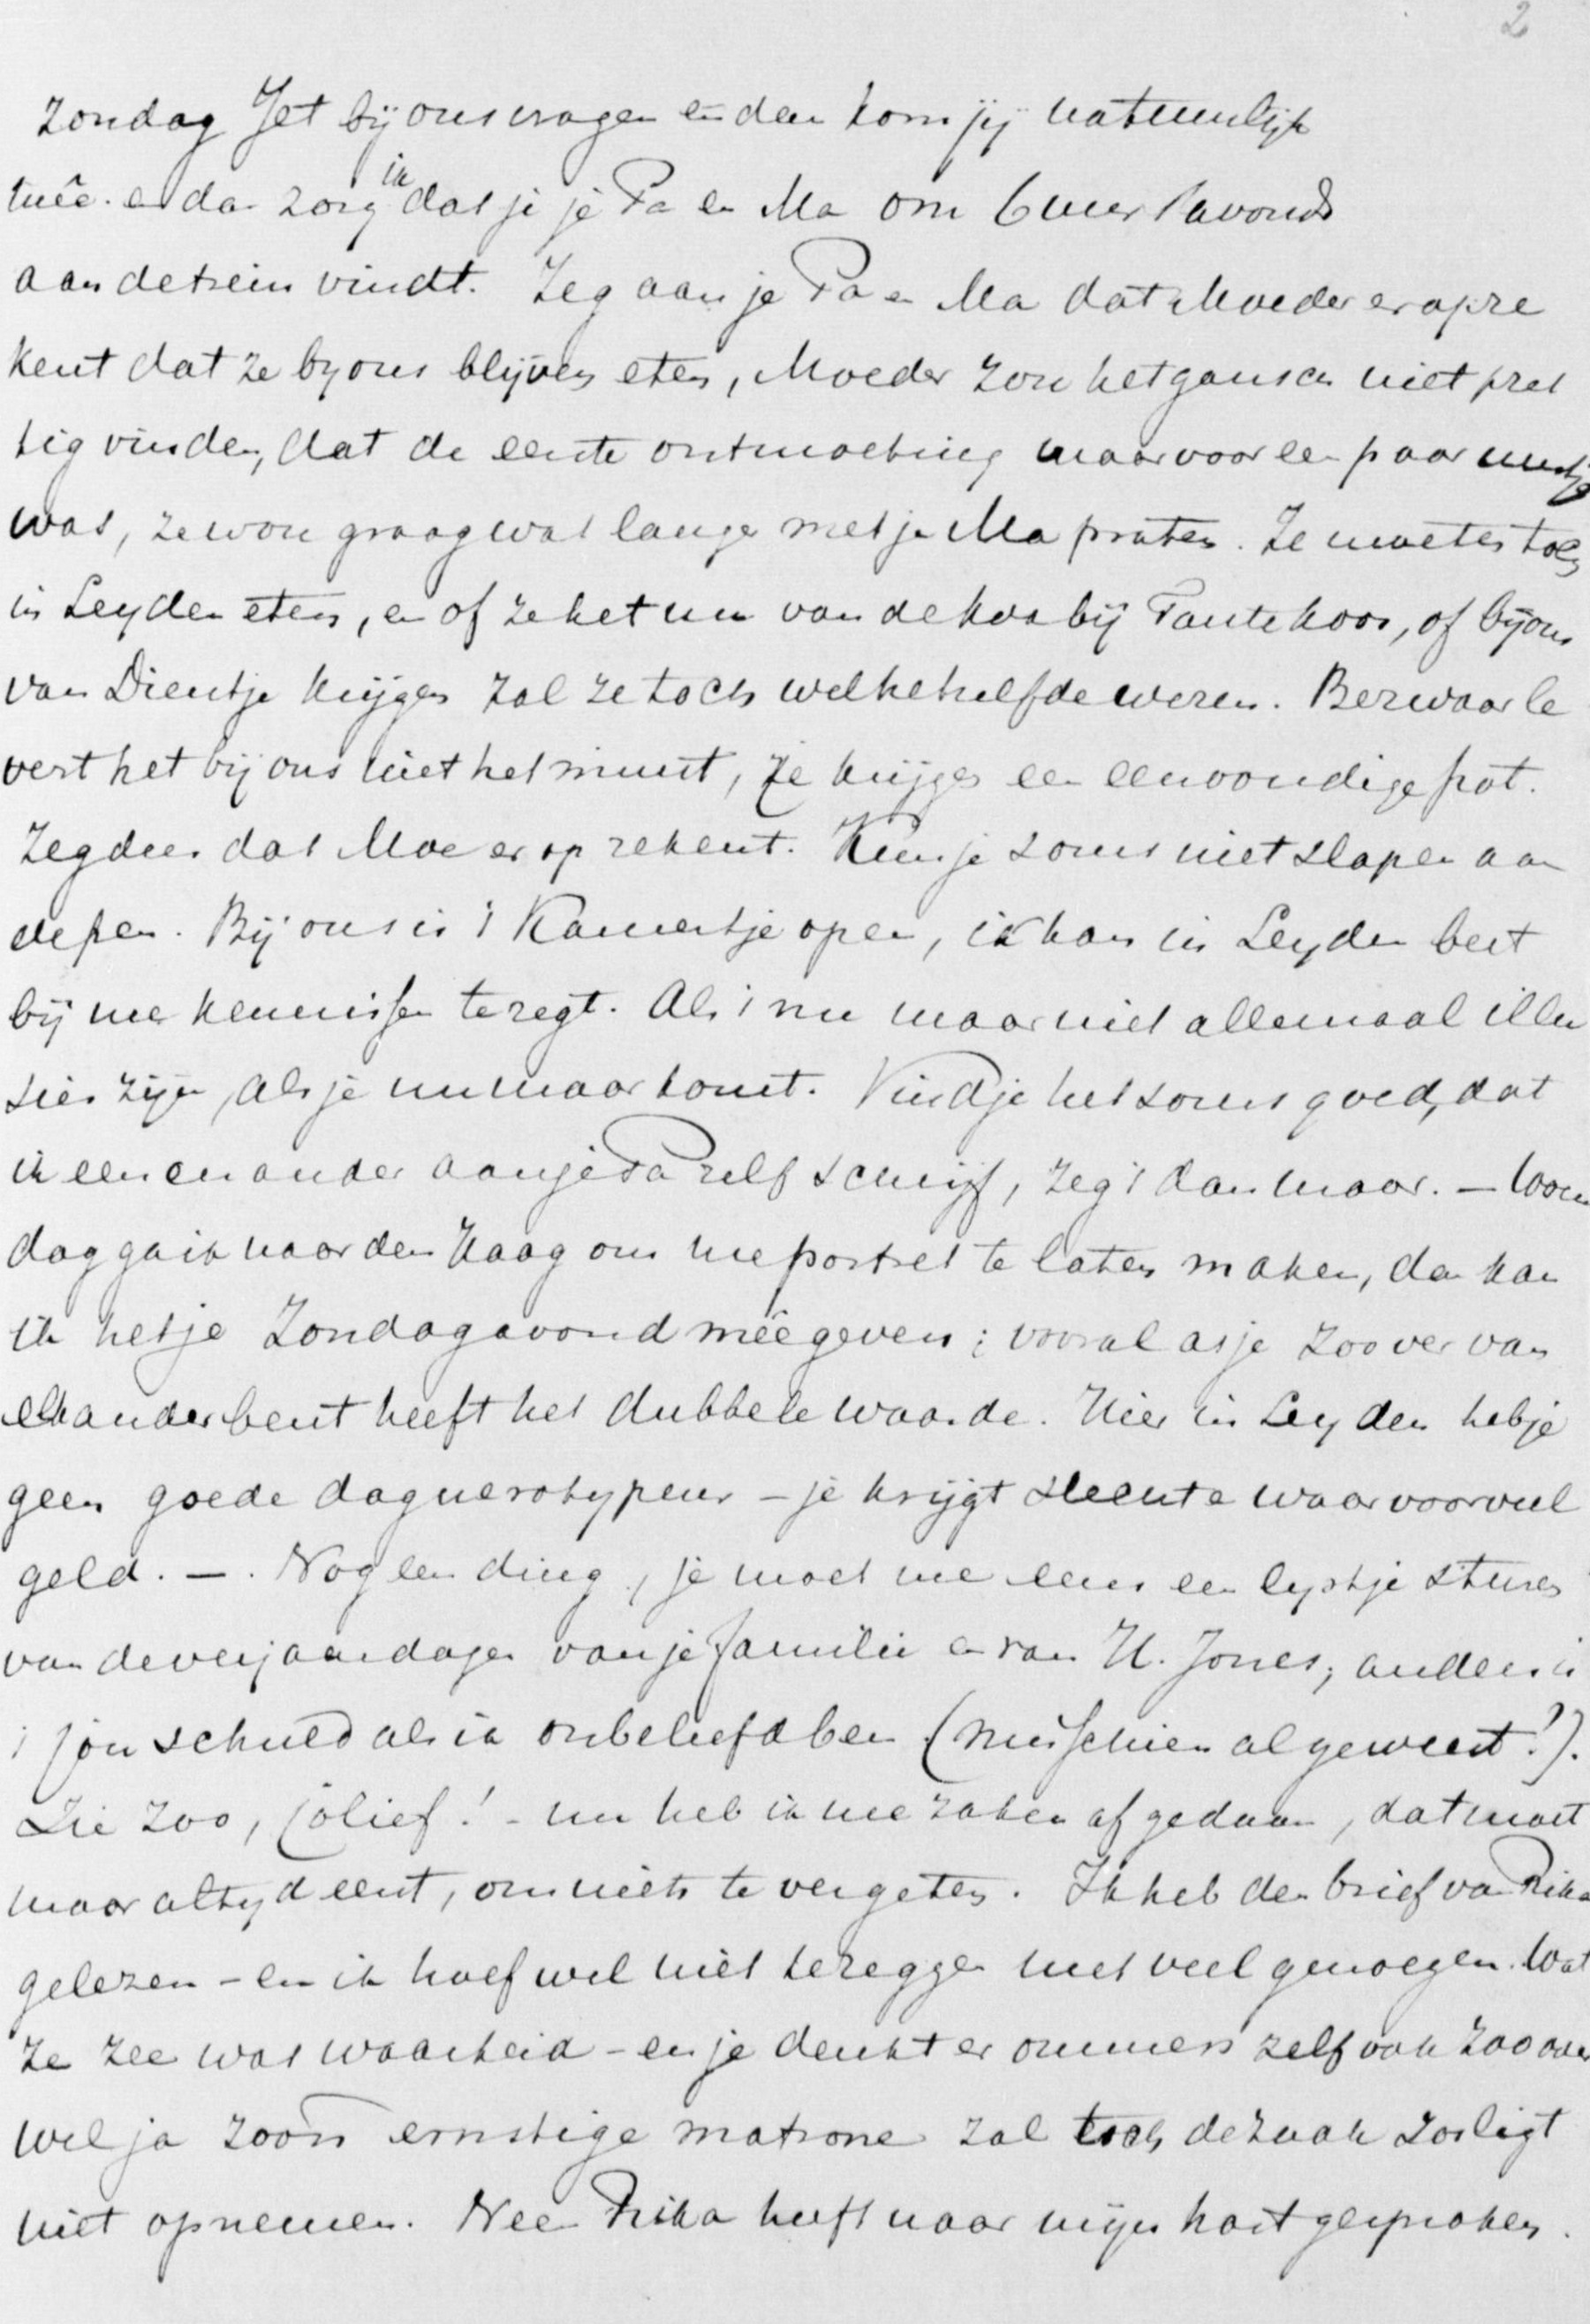 2
Zondag Jet bij ons vragen en dan kom jij natuurlijk
meê. en dan zorg ik dat je je Pa en Ma om 6 uur 's avonds
aan de trein vindt. Zeg aan je Pa en Ma dat Moeder er op re
kent dat ze by ons blijven eten, Moeder zou het gansch niet pret
tig vinden, dat de eerste ontmoeting maar voor een paar uurtjes
was, ze wou graag wat langer met je Ma praten. Ze moeten toch
in Leyden eten, en of ze het nu van de kok bij Tante Koos, of bij ons
van Dientje krijgen zal ze toch wel hetzelfde wezen. Bezwaar le
vert het bij ons niet het minst, ze krijgen een eenvoudige pot.
Zeg dus dat Moe er op rekent. Kun je soms niet slapen aan
de pen. Bij ons is 't Kamertje open, ik kan in Leyden best
bij me kennissen teregt. Als 't nu maar niet allemaal illu
sies zijn, als je nu maar komt. Vind je het soms goed, dat
ik een en ander aan je Pa zelf schrijf, zeg 't dan maar. — Woens
dag ga ik naar den Haag om me portret te laten maken, dan kan
ik het je Zondagavond meêgeven; vooral as je zoo ver van
elkander bent heeft het dubbele waarde. Hier in Leyden heb je
geen goede daguerotypeur – je krijgt slechte waar voor veel
geld. —. Nog een ding, je moet me eens een lystje sturen
van de verjaardagen van je familie en van H. Jones; anders is
't jou schuld als ik onbeleefd ben (misschien al geweest?).
Zie zoo, jolief! – nu heb ik me zaken afgedaan, dat moet
maar altyd eerst, om niets te vergeten. Ik heb den brief van Rika
gelezen – en ik hoef wel niet te zeggen met veel genoegen. Wat
ze zee was waarheid – en je denkt er ommers zelf ook zoo over
wel ja zoo'n ernstige matrone zal toch de zaak zoo ligt
niet opnemen. Nee Rika heeft naar mijn hart gesproken.